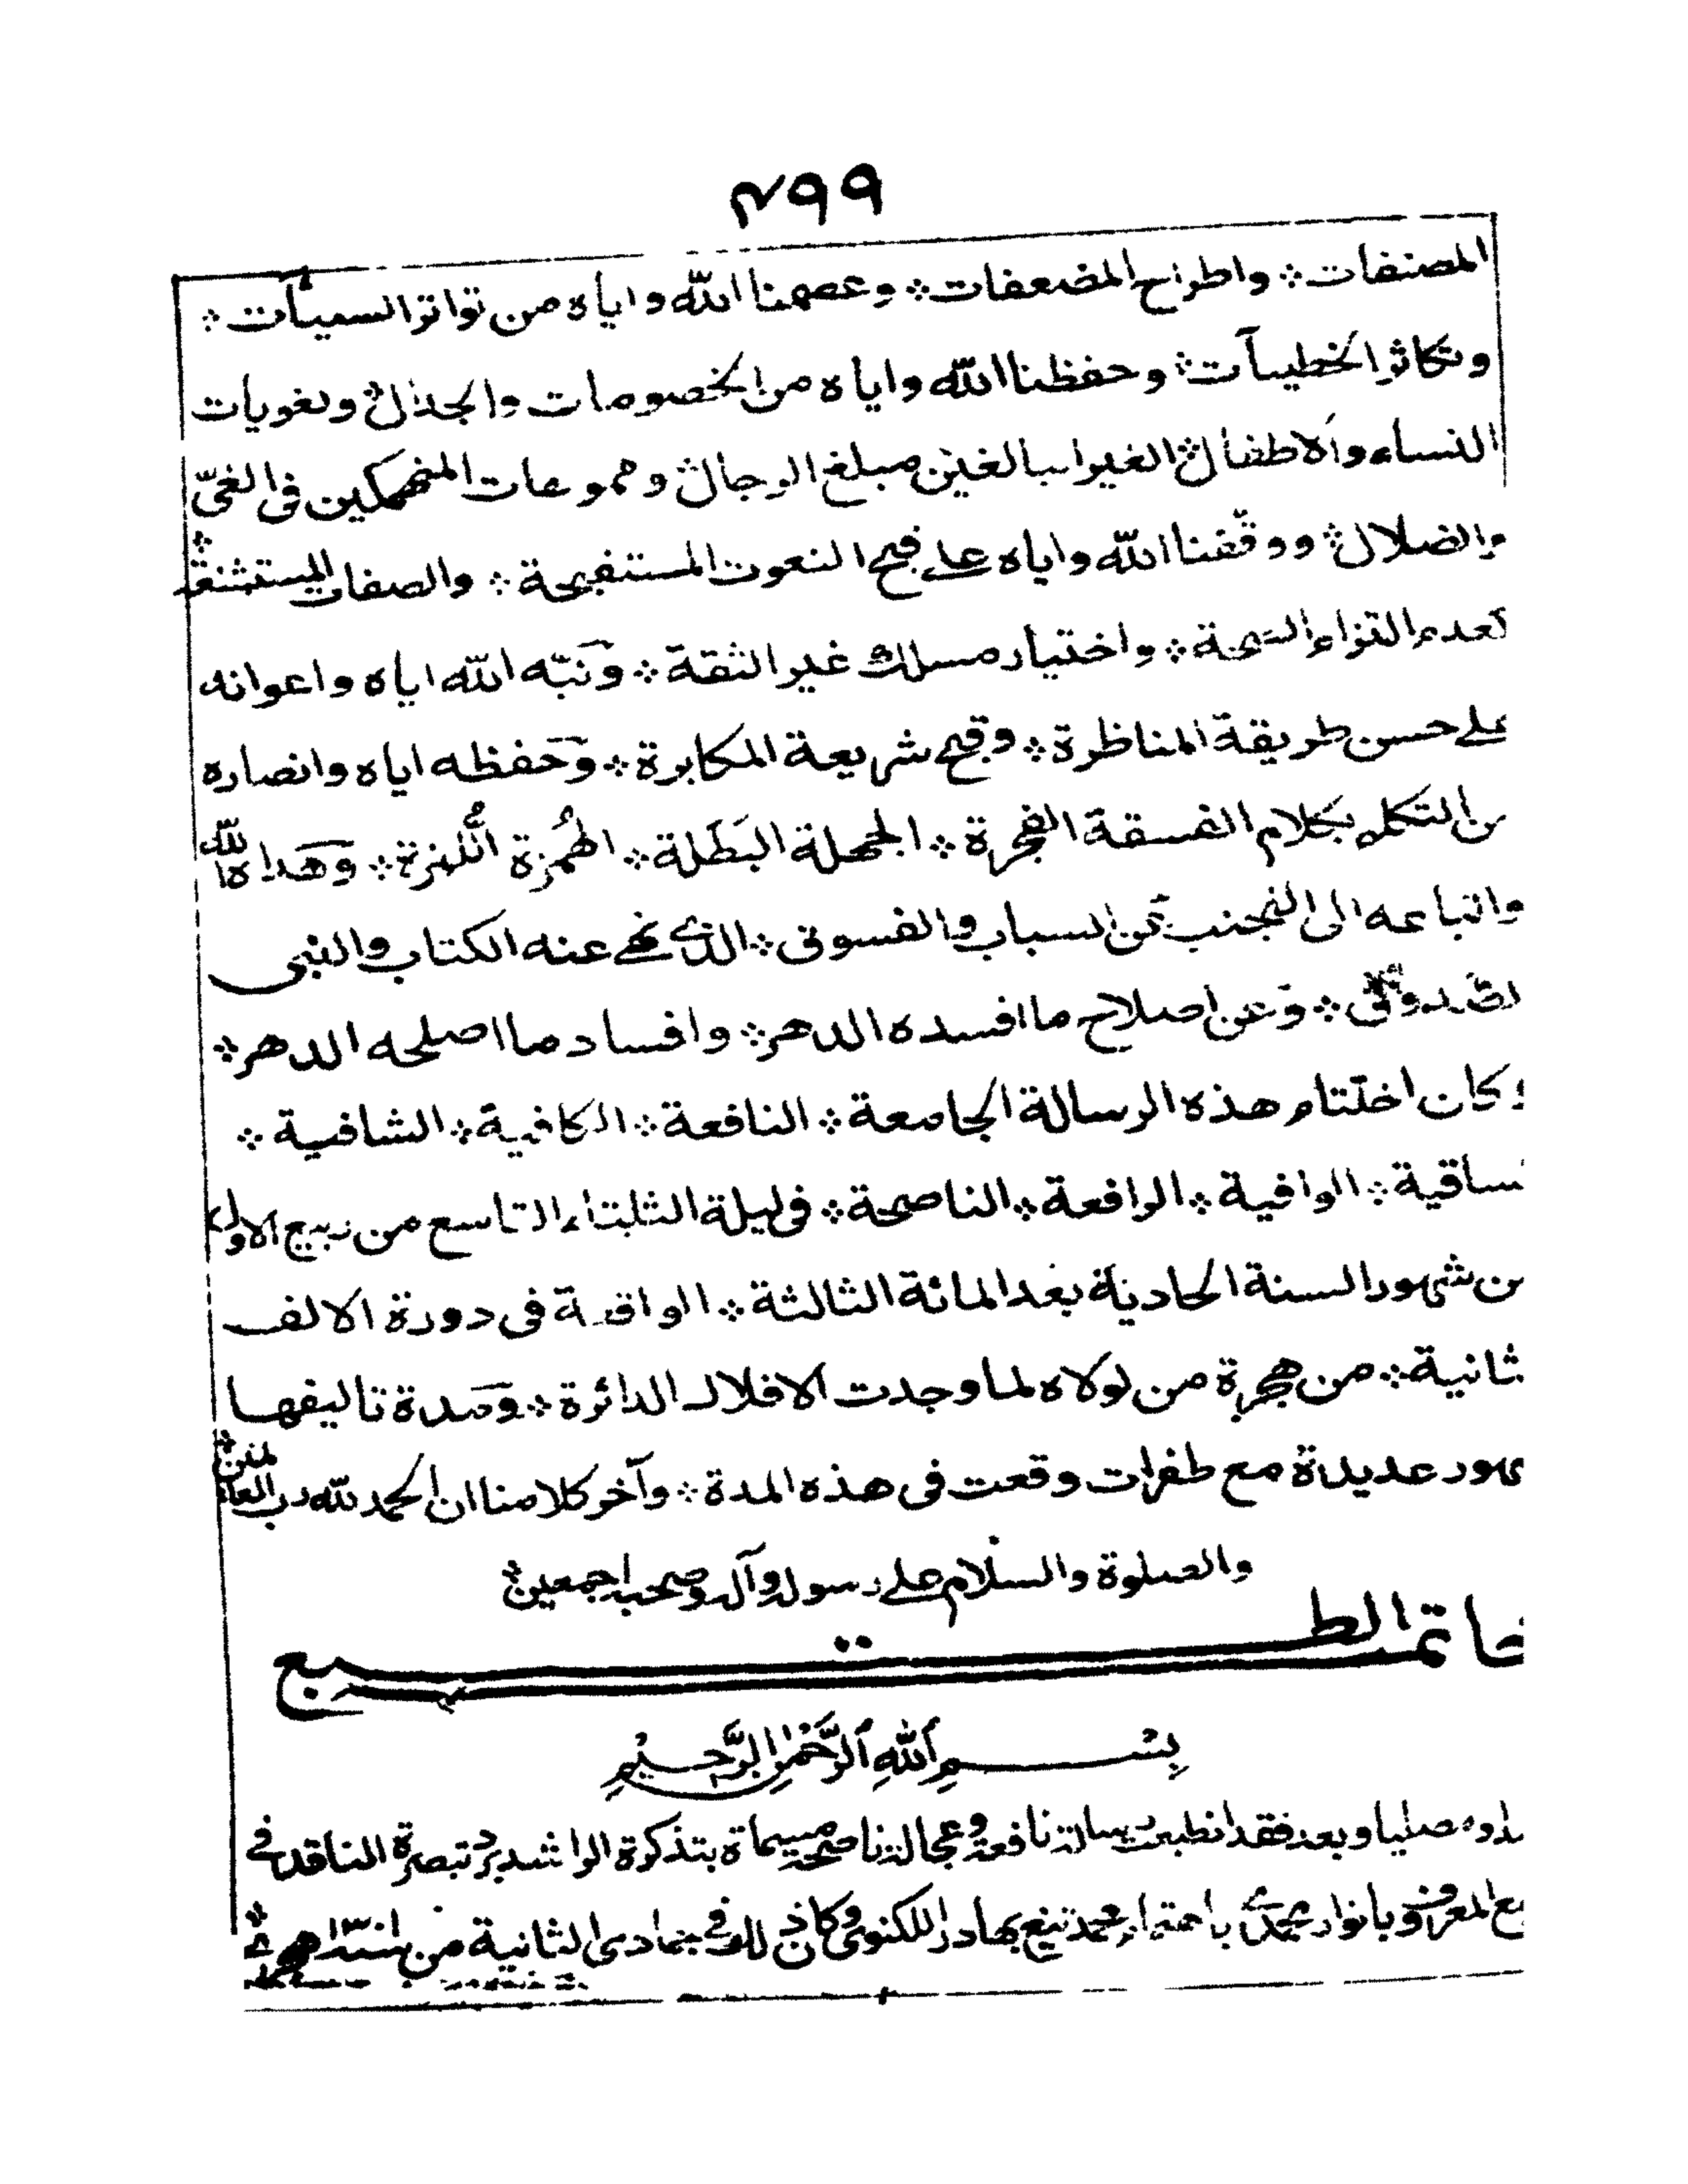 ٤٩٩
المصنفات ۞ واطراح المضعفات ۞ وعصمنا الله واياه من تواتر السيـٔات ۞
وتكاثر الخطيـٔات ۞ وحفظنا الله واياه من الخصومات والجدال ۞ ومغويات
النساء والاطفال ۞ الغير البالغين مبلغ الرجال ۞ ومموعات المنهمكين فى الغىّ
والضلال ۞ ووقّفنا الله واياه على قبح النعوت المستقبحة ۞ والصفات المستشنعة ۞
كعدم التزام الصحة ۞ واختيار مسلك غير الثقة ۞ ونبّه الله اياه واعوانه
على حسن طريقة المناظرة ۞ وقبح شريعة المكابرة ۞ وحفظه اياه وانصاره
من التكلم بكلام الفسقة الفجرة ۞ الجهلة البَطَلة ۞ الهُمزة اللُّمزة ۞ وهداه الله
واتباعه الى التجنب عن السباب والفسوق ۞ الذى نهى عنه الكتاب والنبى
الصدوق ۞ وعن اصلاح ما افسده الدهر ۞ وافساد ما اصلحه الدهر ۞
وكان اختتام هذه الرسالة الجامعة ۞ النافعة ۞ الكافية ۞ الشافية ۞
الساقية ۞ الوافية ۞ الرافعة ۞ الناصحة ۞ فى ليلة الثلثاء التاسع من ربيع الاول
من شهور السنة الحادية بعد المائة الثالثة ۞ الواقعة فى دورة الالف
الثانية ۞ من هجرة من لولاه لما وجدت الافلاك الدائرة ۞ ومدة تاليفها
شهور عديدة مع طفرات وقعت فى هذه المدة ۞ وآخر كلامنا ان الحمد لله رب العالمين ۞
والصلوة والسلام على رسوله وآله وصحبه اجمعين ۞
خاتمة الطبع
بسم الله الرحمن الرحيم
حامدا ومصليا وبعد فقد انطبعت رسالة نافعة وعجالة ناصحة مسماة بتذكرة الراشد برد تبصرة الناقد فى
المطبع المعروف بانوار محمدى باهتمام محمد تيغ بهادر اللكنوى وكان ذلك فى جمادى الثانية من سنة ١٣٠١ هجرية ۞